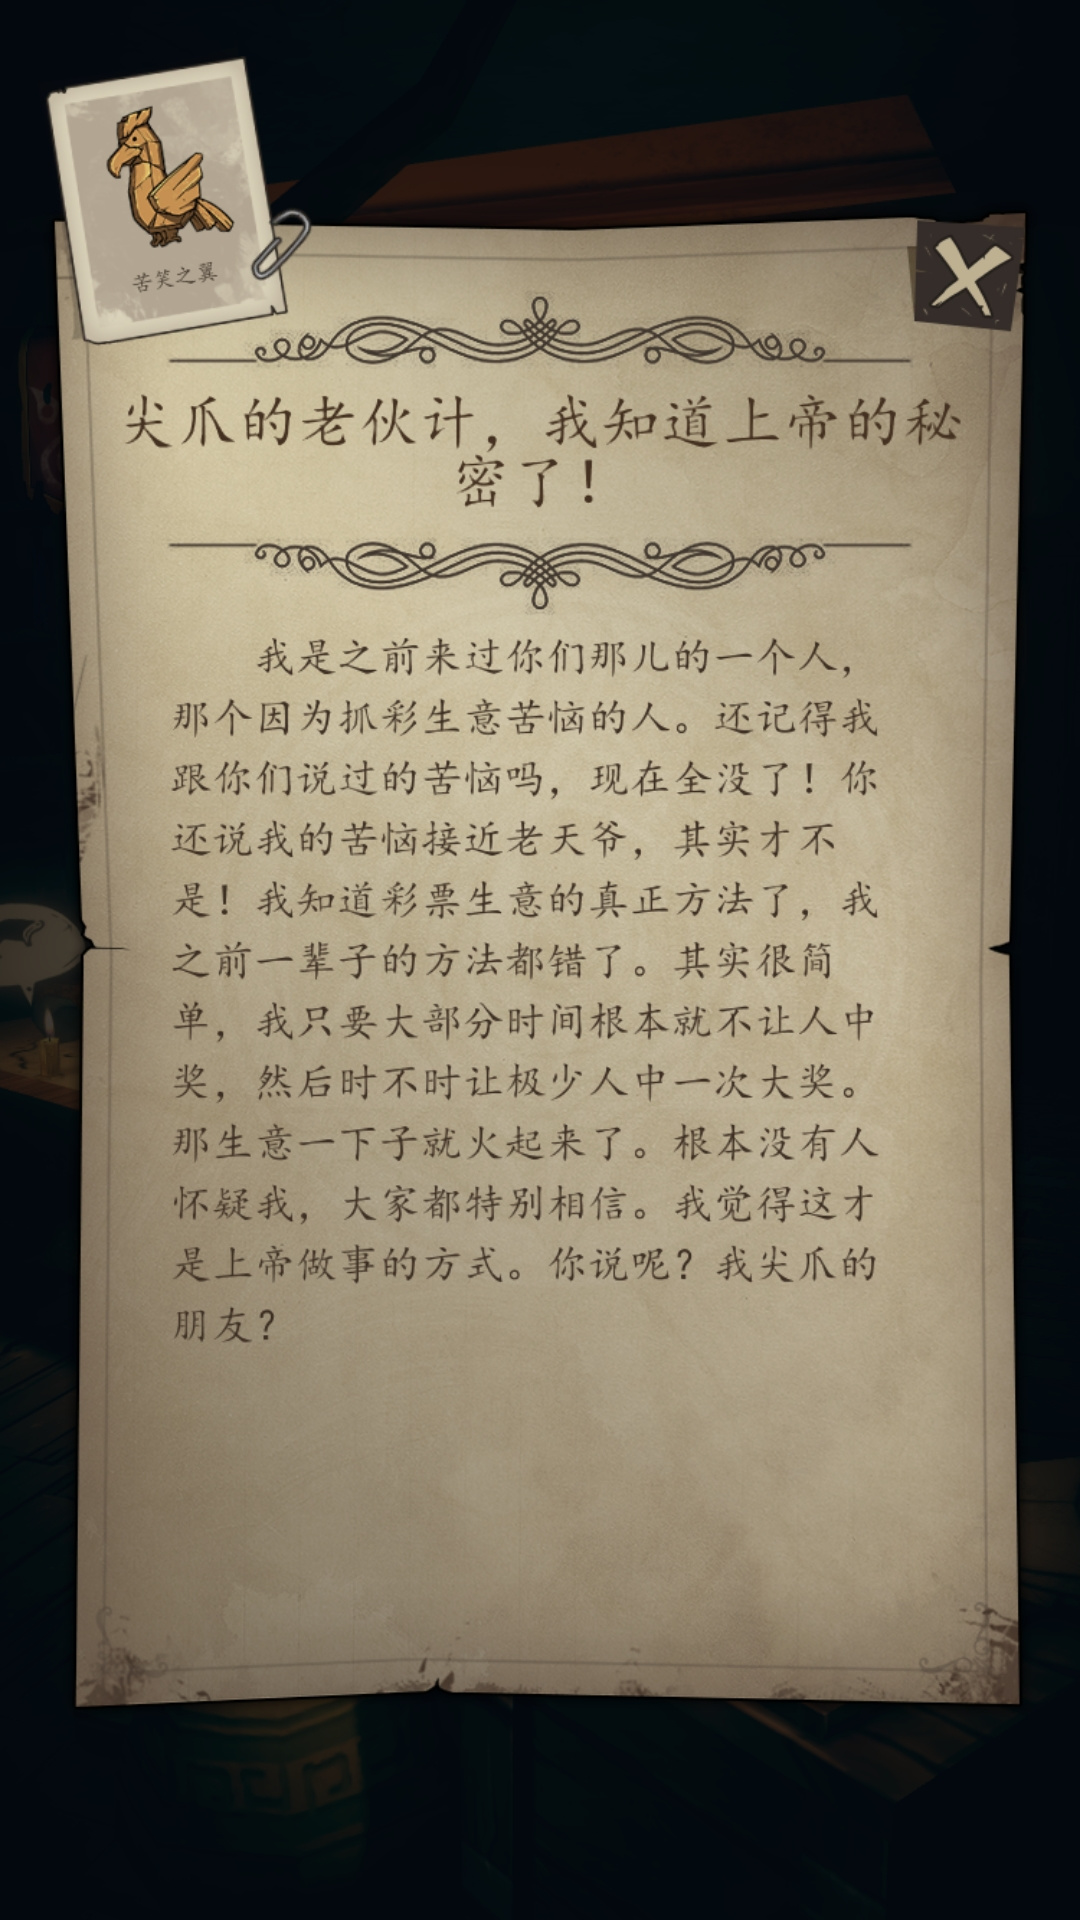 苦笑之翼
尖爪的老伙计，我知道上帝的秘
密了！
我是之前来过你们那儿的一个人，
那个因为抓彩生意苦恼的人。还记得我
跟你们说过的苦恼吗，现在全没了！你
还说我的苦恼接近老天爷，其实才不
是！我知道彩票生意的真正方法了，我
之前一辈子的方法都错了。其实很简
单，我只要大部分时间根本就不让人中
奖，然后时不时让极少人中一次大奖。
那生意一下子就火起来了。根本没有人
怀疑我，大家都特别相信。我觉得这才
是上帝做事的方式。你说呢？我尖爪的
朋友？